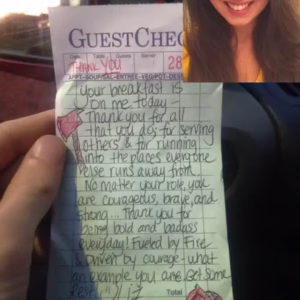 GUESTCHEC
Date Table Guests Server
THANK YOU 28
APPT-SOUP/SAL-ENTREE-VEG/POT-DES
your breakfast is
on me today -
Thank you for all
that you do; for serving
others & for running
into the places everyone
else runs away from.
No matter your role, you
are courageous, brave, and
strong... Thank you for
being bold and badass
everyday! Fueled by Fire
& Driven by courage - what
an example you are. Get some
rest
Total